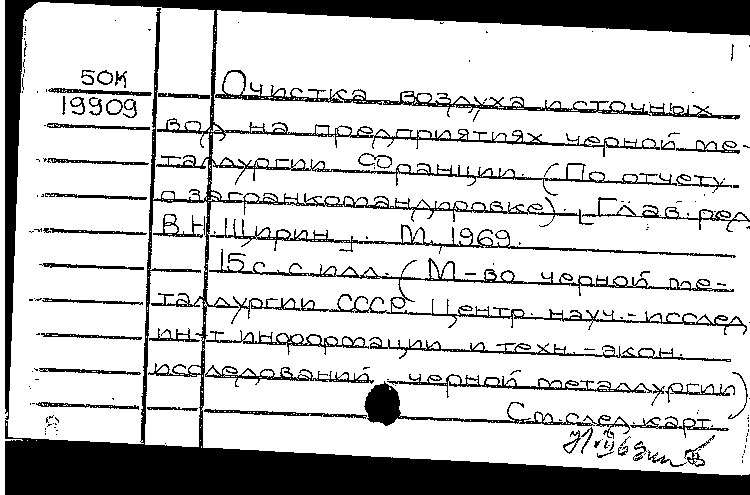 1
50К
19909
Очистка воздуха и сточных
вод на предприятиях черной ме-
таллургии Франции. (По отчету
о загранкомандировке). [Глав. ред.
В.Н. Щирин]. М., 1969.
15 с. с илл. (М-во черной ме-
таллургии СССР. Центр. науч.-исслед.
ин-т информации и техн.-экон.
исследований черной металлургии)
См. след. карт.